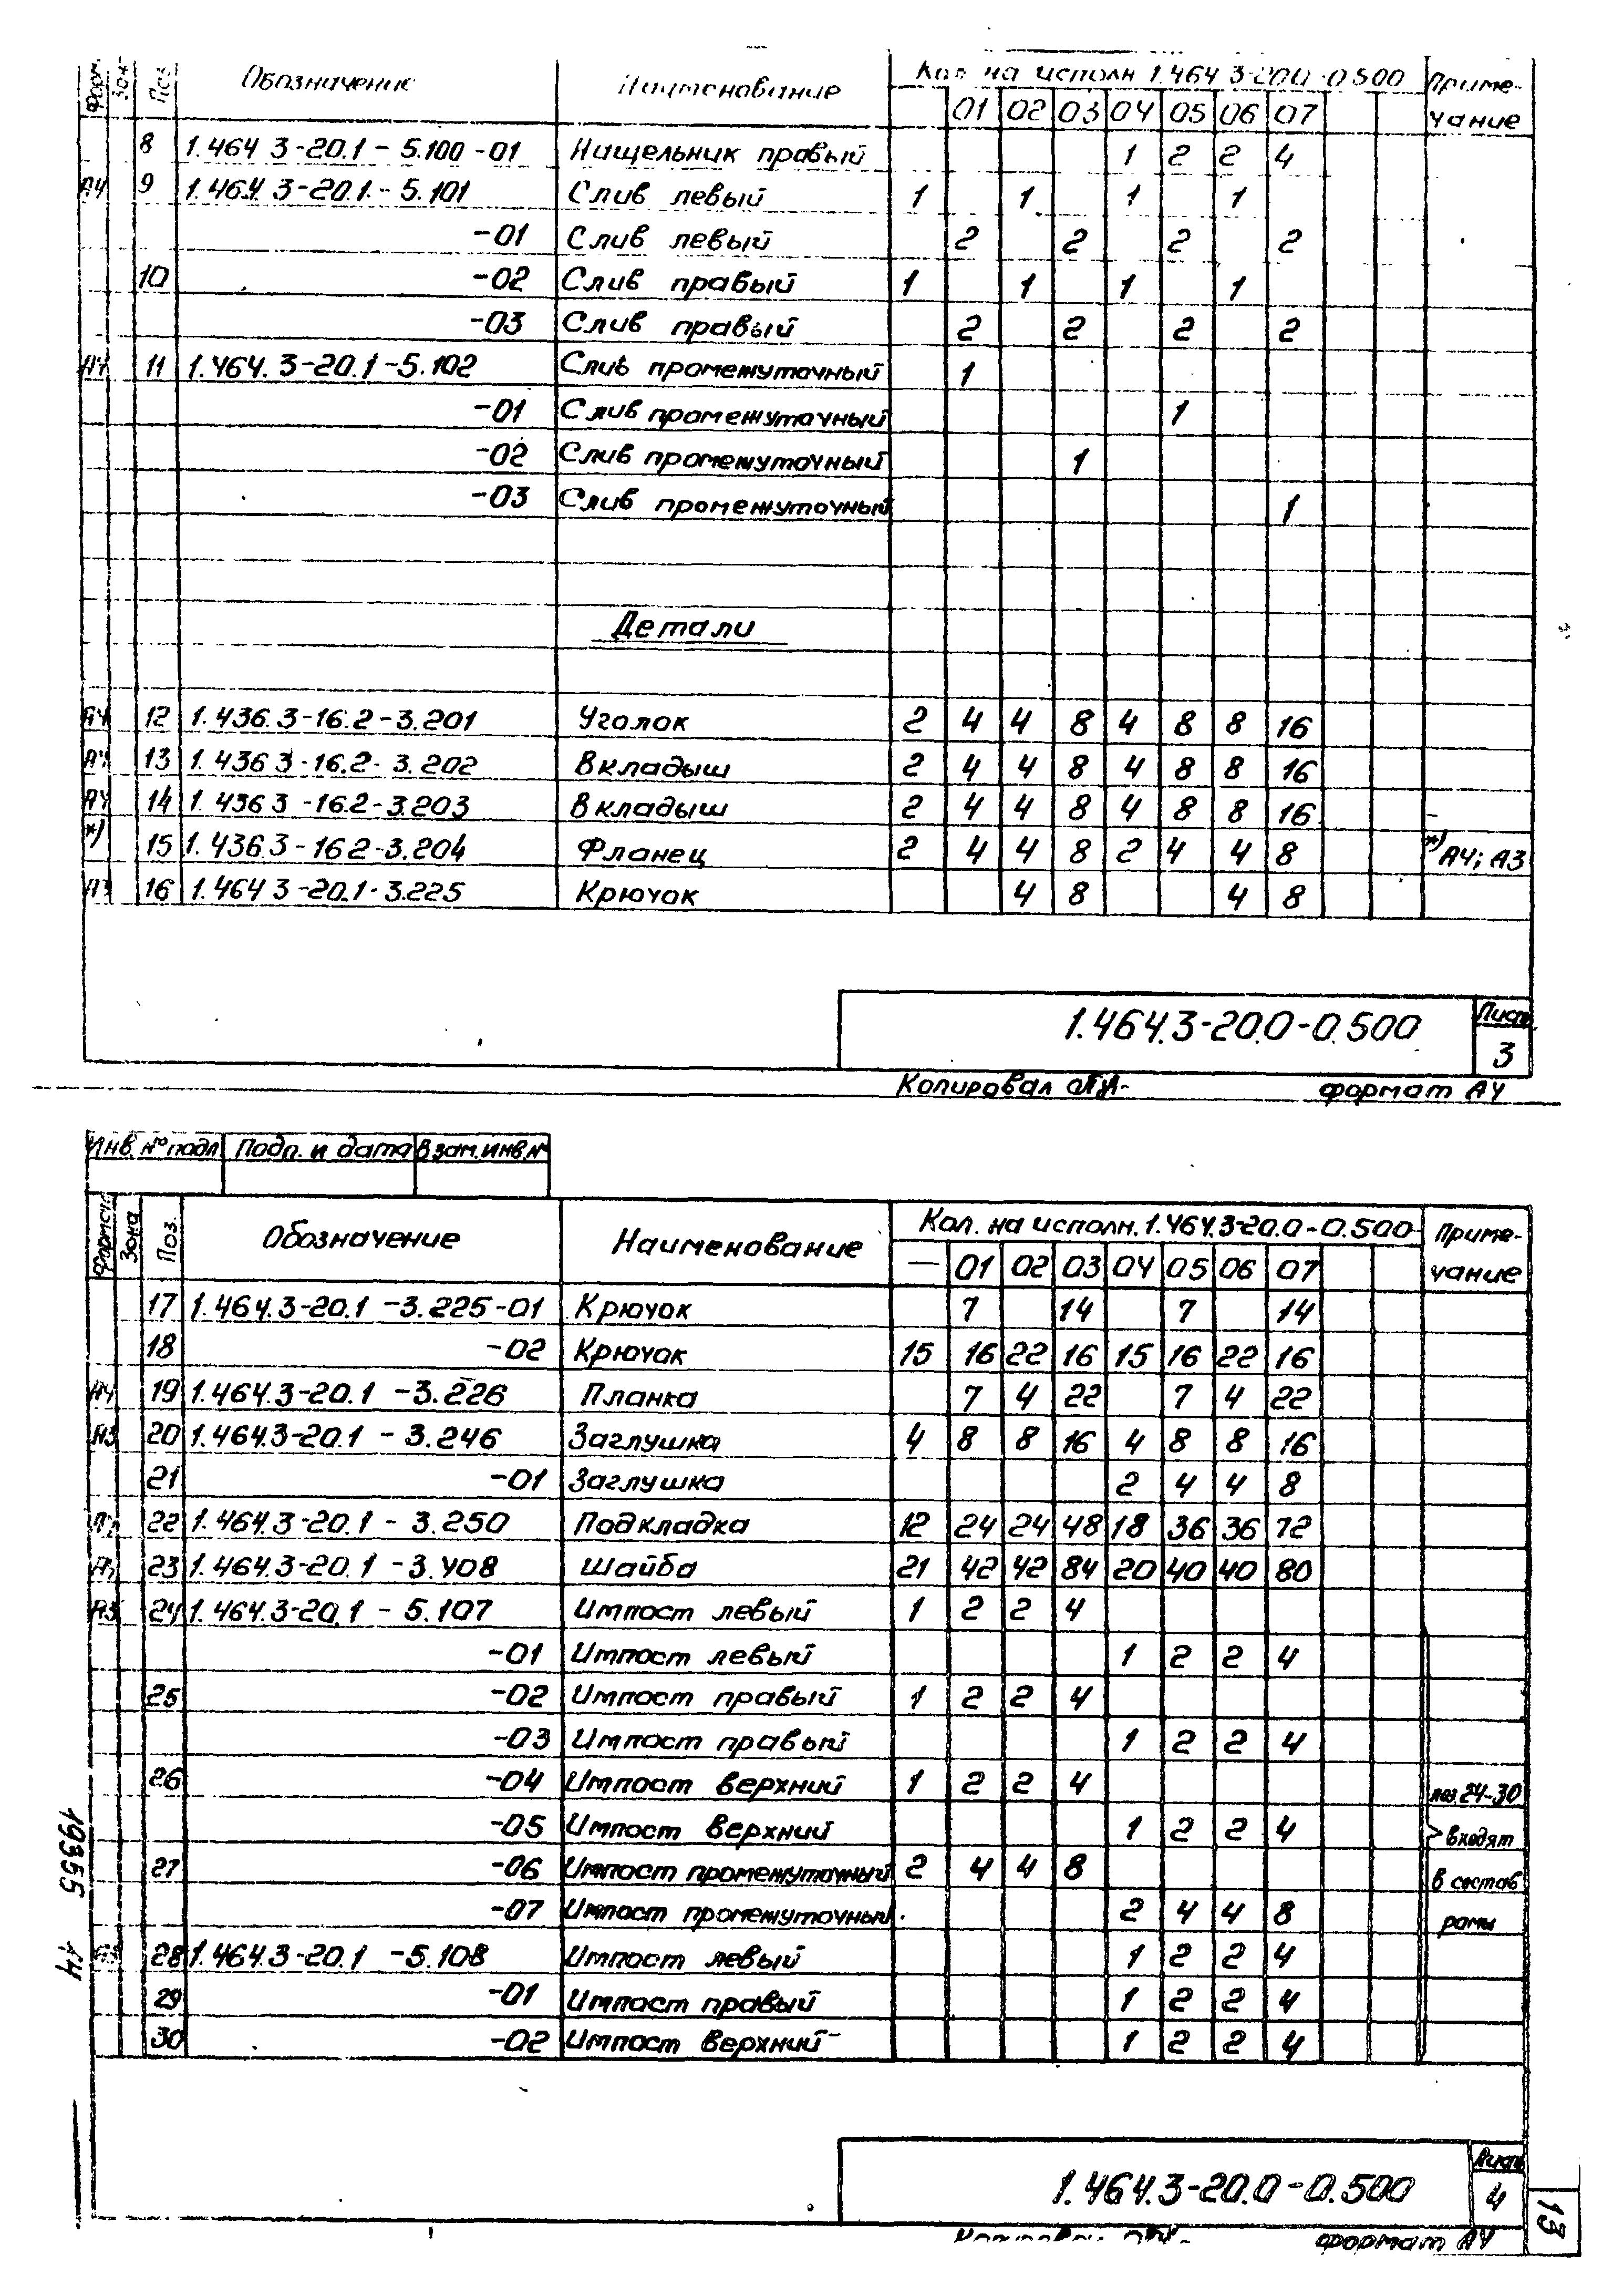 Форм. Зона Поз. Обозначение Наименование Кол. на исполн. 1.464.3-20.0-0.500 Приме-
01 02 03 04 05 06 07 чание
8 1.464.3-20.1-5.100-01 Нащельник правый 1 2 2 4
А4 9 1.464.3-20.1-5.101 Слив левый 1 1 1 1
-01 Слив левый 2 2 2 2
10 -02 Слив правый 1 1 1 1
-03 Слив правый 2 2 2 2
А4 11 1.464.3-20.1-5.102 Слив промежуточный 1
-01 Слив промежуточный 1
-02 Слив промежуточный 1
-03 Слив промежуточный 1
Детали
А4 12 1.436.3-16.2-3.201 Уголок 2 4 4 8 4 8 8 16
А4 13 1.436.3-16.2-3.202 Вкладыш 2 4 4 8 4 8 8 16
А4 14 1.436.3-16.2-3.203 Вкладыш 2 4 4 8 4 8 8 16
*) 15 1.436.3-16.2-3.204 Фланец 2 4 4 8 2 4 4 8 *) А4; А3
А3 16 1.464.3-20.1-3.225 Крючок 4 8 4 8
1.464.3-20.0-0.500 Лист
3
Копировал формат А4
Инв. № подл. Подп. и дата Взам. инв. №
Формат Зона Поз. Обозначение Наименование Кол. на исполн. 1.464.3-20.0-0.500 Приме-
— 01 02 03 04 05 06 07 чание
17 1.464.3-20.1-3.225-01 Крючок 7 14 7 14
18 -02 Крючок 15 16 22 16 15 16 22 16
А4 19 1.464.3-20.1-3.226 Планка 7 4 22 7 4 22
А3 20 1.464.3-20.1-3.246 Заглушка 4 8 8 16 4 8 8 16
21 -01 Заглушка 2 4 4 8
22 1.464.3-20.1-3.250 Подкладка 12 24 24 48 18 36 36 72
23 1.464.3-20.1-3.408 Шайба 21 42 42 84 20 40 40 80
А3 24 1.464.3-20.1-5.107 Импост левый 1 2 2 4
-01 Импост левый 1 2 2 4
25 -02 Импост правый 1 2 2 4
-03 Импост правый 1 2 2 4
26 -04 Импост верхний 1 2 2 4 поз. 24-30
-05 Импост верхний 1 2 2 4 входят
27 -06 Импост промежуточный 2 4 4 8 в состав
-07 Импост промежуточный 2 4 4 8 рамы
28 1.464.3-20.1-5.108 Импост левый 1 2 2 4
29 -01 Импост правый 1 2 2 4
30 -02 Импост верхний 1 2 2 4
19355 14
1.464.3-20.0-0.500 Лист
4
13
формат А4